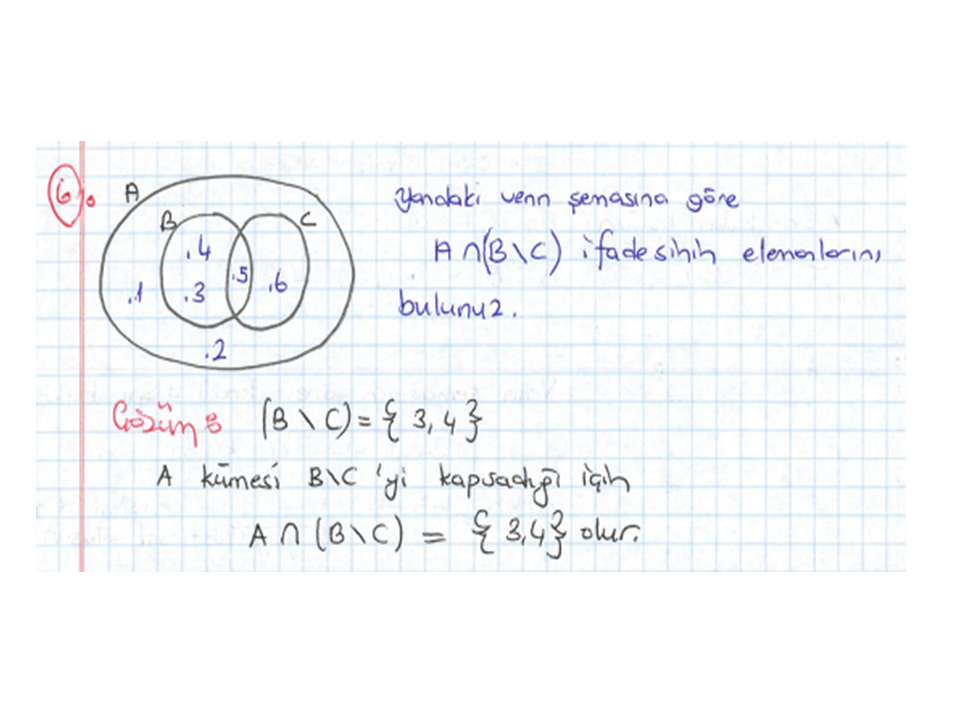 6.
A
B
C
.4
.5
.1
.3
.6
.2
Yandaki venn şemasına göre
A∩(B\C) ifadesinin elemanlarını
bulunuz.
Çözüm: (B\C)={3,4}
A kümesi B\C 'yi kapsadığı için
A∩(B\C) = {3,4} olur.